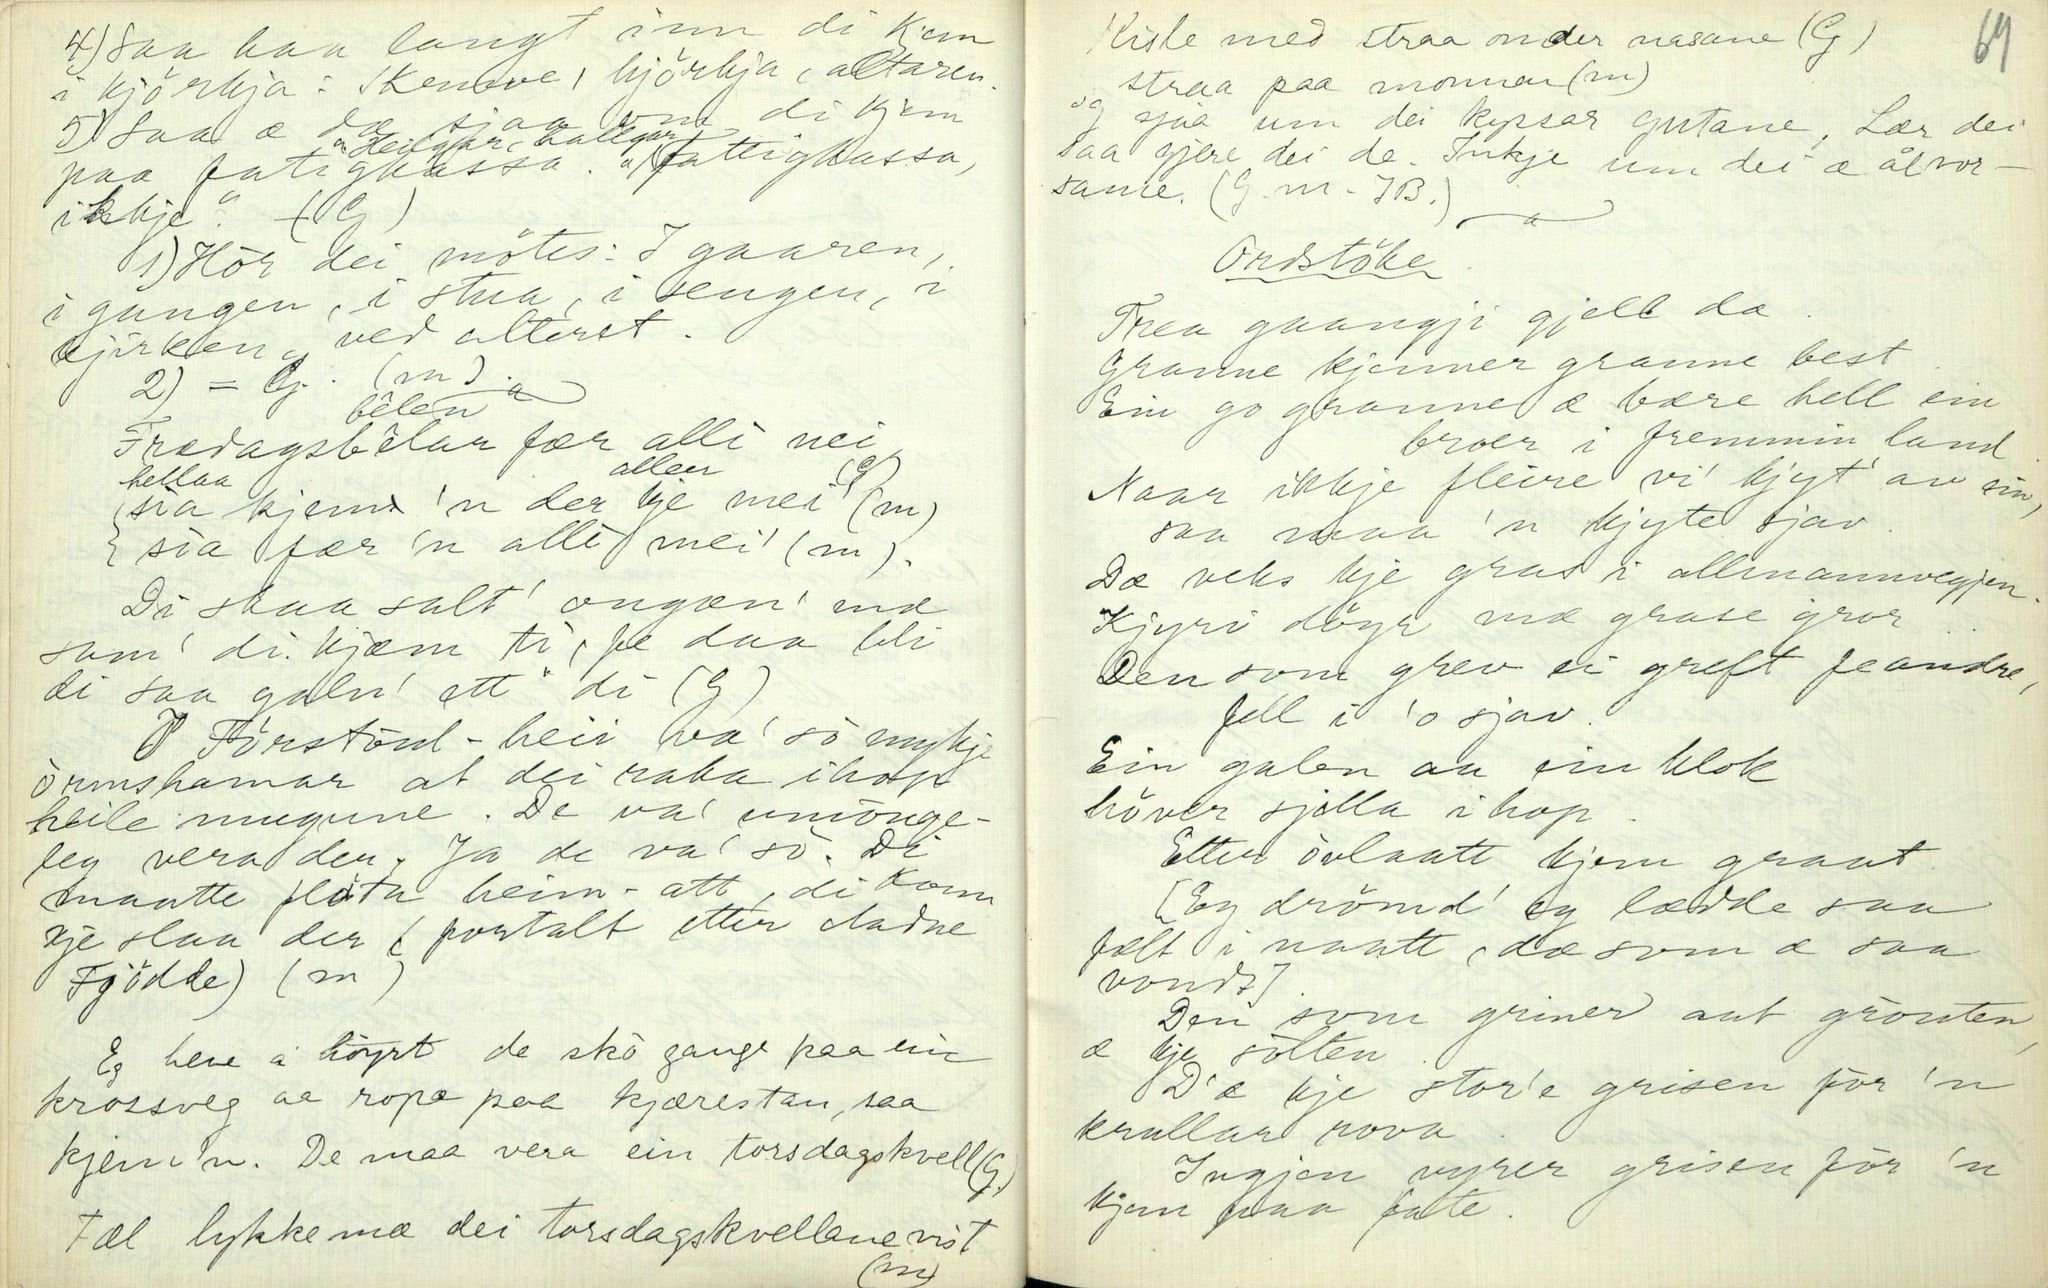 4) Saa haa langt inn di kjem
i kjörkja: Skeneve, kjörkja, altaren.
5) Saa æ dæ sjaa om di kjem
"Heilgar, hallgar
paa fatigkassa. "fattigkassa,
ikkje". (G)
1) Hör dei mötes: I gaaren,
i gangen, i stua, i sengen, i
kjirken, ved alteret.
2) = G. (m)
bêlen
Frædagsbêlar fær alli nei
hellaa allen (G)
sia kjem 'n der kje mei (m)
sia fær 'n alli mei' (m).
Di skaa salt' ongæn' mæ
sam' di kjæm ti, fe daa bli
di saa galn' ett di (G)
I Förstöul-heii va' sö mykje
örmshamar at dei raka ihop
heile mugune. De va' umönge-
leg vera der. Ja de va' sö. Di
maatte flöta heim-att, di kom
kje slaa der (fortalt etter Aadne
Fjödde) (m)
Eg heve å höyrt de skö gange paa ein
krossveg aa ropa paa kjærestan, saa
kjem'n. De maa vera ein torsdagskvell (G.)
Fæl lykke mæ dei torsdagskvellane vist
(m)
69
Kiste med straa onder nasane (G)
straa paa monnen (m)
og sjaa um dei kyssar gutane. Lær dei
saa gjere dei de. Inkje um dei æ ålvor-
same. (G. m - IB.)
Ordstöke
Trea gaangji gjell da.
Granne kjenner granne best
Ein go granne æ bære hell ein
broer i fremmin land
Naar ikkje fleire vi' kjyt' av ein,
saa maa 'n kjyte sjav.
Dæ veks kje gras i allmannvegjen.
Kjyri döyr mæ grase gror
Den som grev ei greft fe andre,
fell i 'o sjav.
Ein galen aa ein klok
höver sjella ihop.
Etter övlaatt kjem graat.
[Eg drömd' eg lædde saa
fælt i naatt, dæ som æ saa
vondt].
Den som griner aat gröuten,
æ kje sölten.
D'æ kje stor'e grisen för 'n
krullar rova.
Ingjen vyrer grisen för 'n
kjem paa fate.